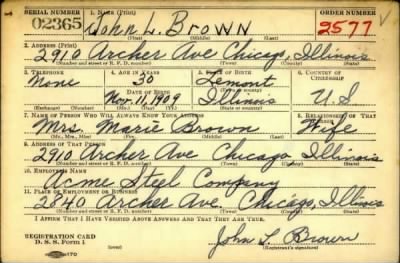 SERIAL NUMBER 1. NAME (Print) ORDER NUMBER
02365 John L. Brown 2577
(First) (Middle) (Last)
2. ADDRESS (Print)
2910 Archer Ave Chicago, Illinois
(Number and street or R. F. D. number) (Town) (County) (State)
3. TELEPHONE 4. AGE IN YEARS 5. PLACE OF BIRTH 6. COUNTRY OF CITIZENSHIP
None 30 Lemont
DATE OF BIRTH
Nov. 11, 1909 Illinois U.S
(Exchange) (Number) (Mo.) (Day) (Yr.) (State or country)
7. NAME OF PERSON WHO WILL ALWAYS KNOW YOUR ADDRESS 8. RELATIONSHIP OF THAT PERSON
Mrs. Marie Brown Wife
(Mr., Mrs., Miss) (First) (Middle) (Last)
9. ADDRESS OF THAT PERSON
2910 Archer Ave Chicago Illinois
(Number and street or R. F. D. number) (Town) (County) (State)
10. EMPLOYER'S NAME
Acme Steel Company
11. PLACE OF EMPLOYMENT OR BUSINESS
2840 Archer Ave. Chicago, Illinois
(Number and street or R. F. D. number) (Town) (County) (State)
I AFFIRM THAT I HAVE VERIFIED ABOVE ANSWERS AND THAT THEY ARE TRUE.
REGISTRATION CARD
D. S. S. Form 1 John L. Brown
(Registrant's signature)